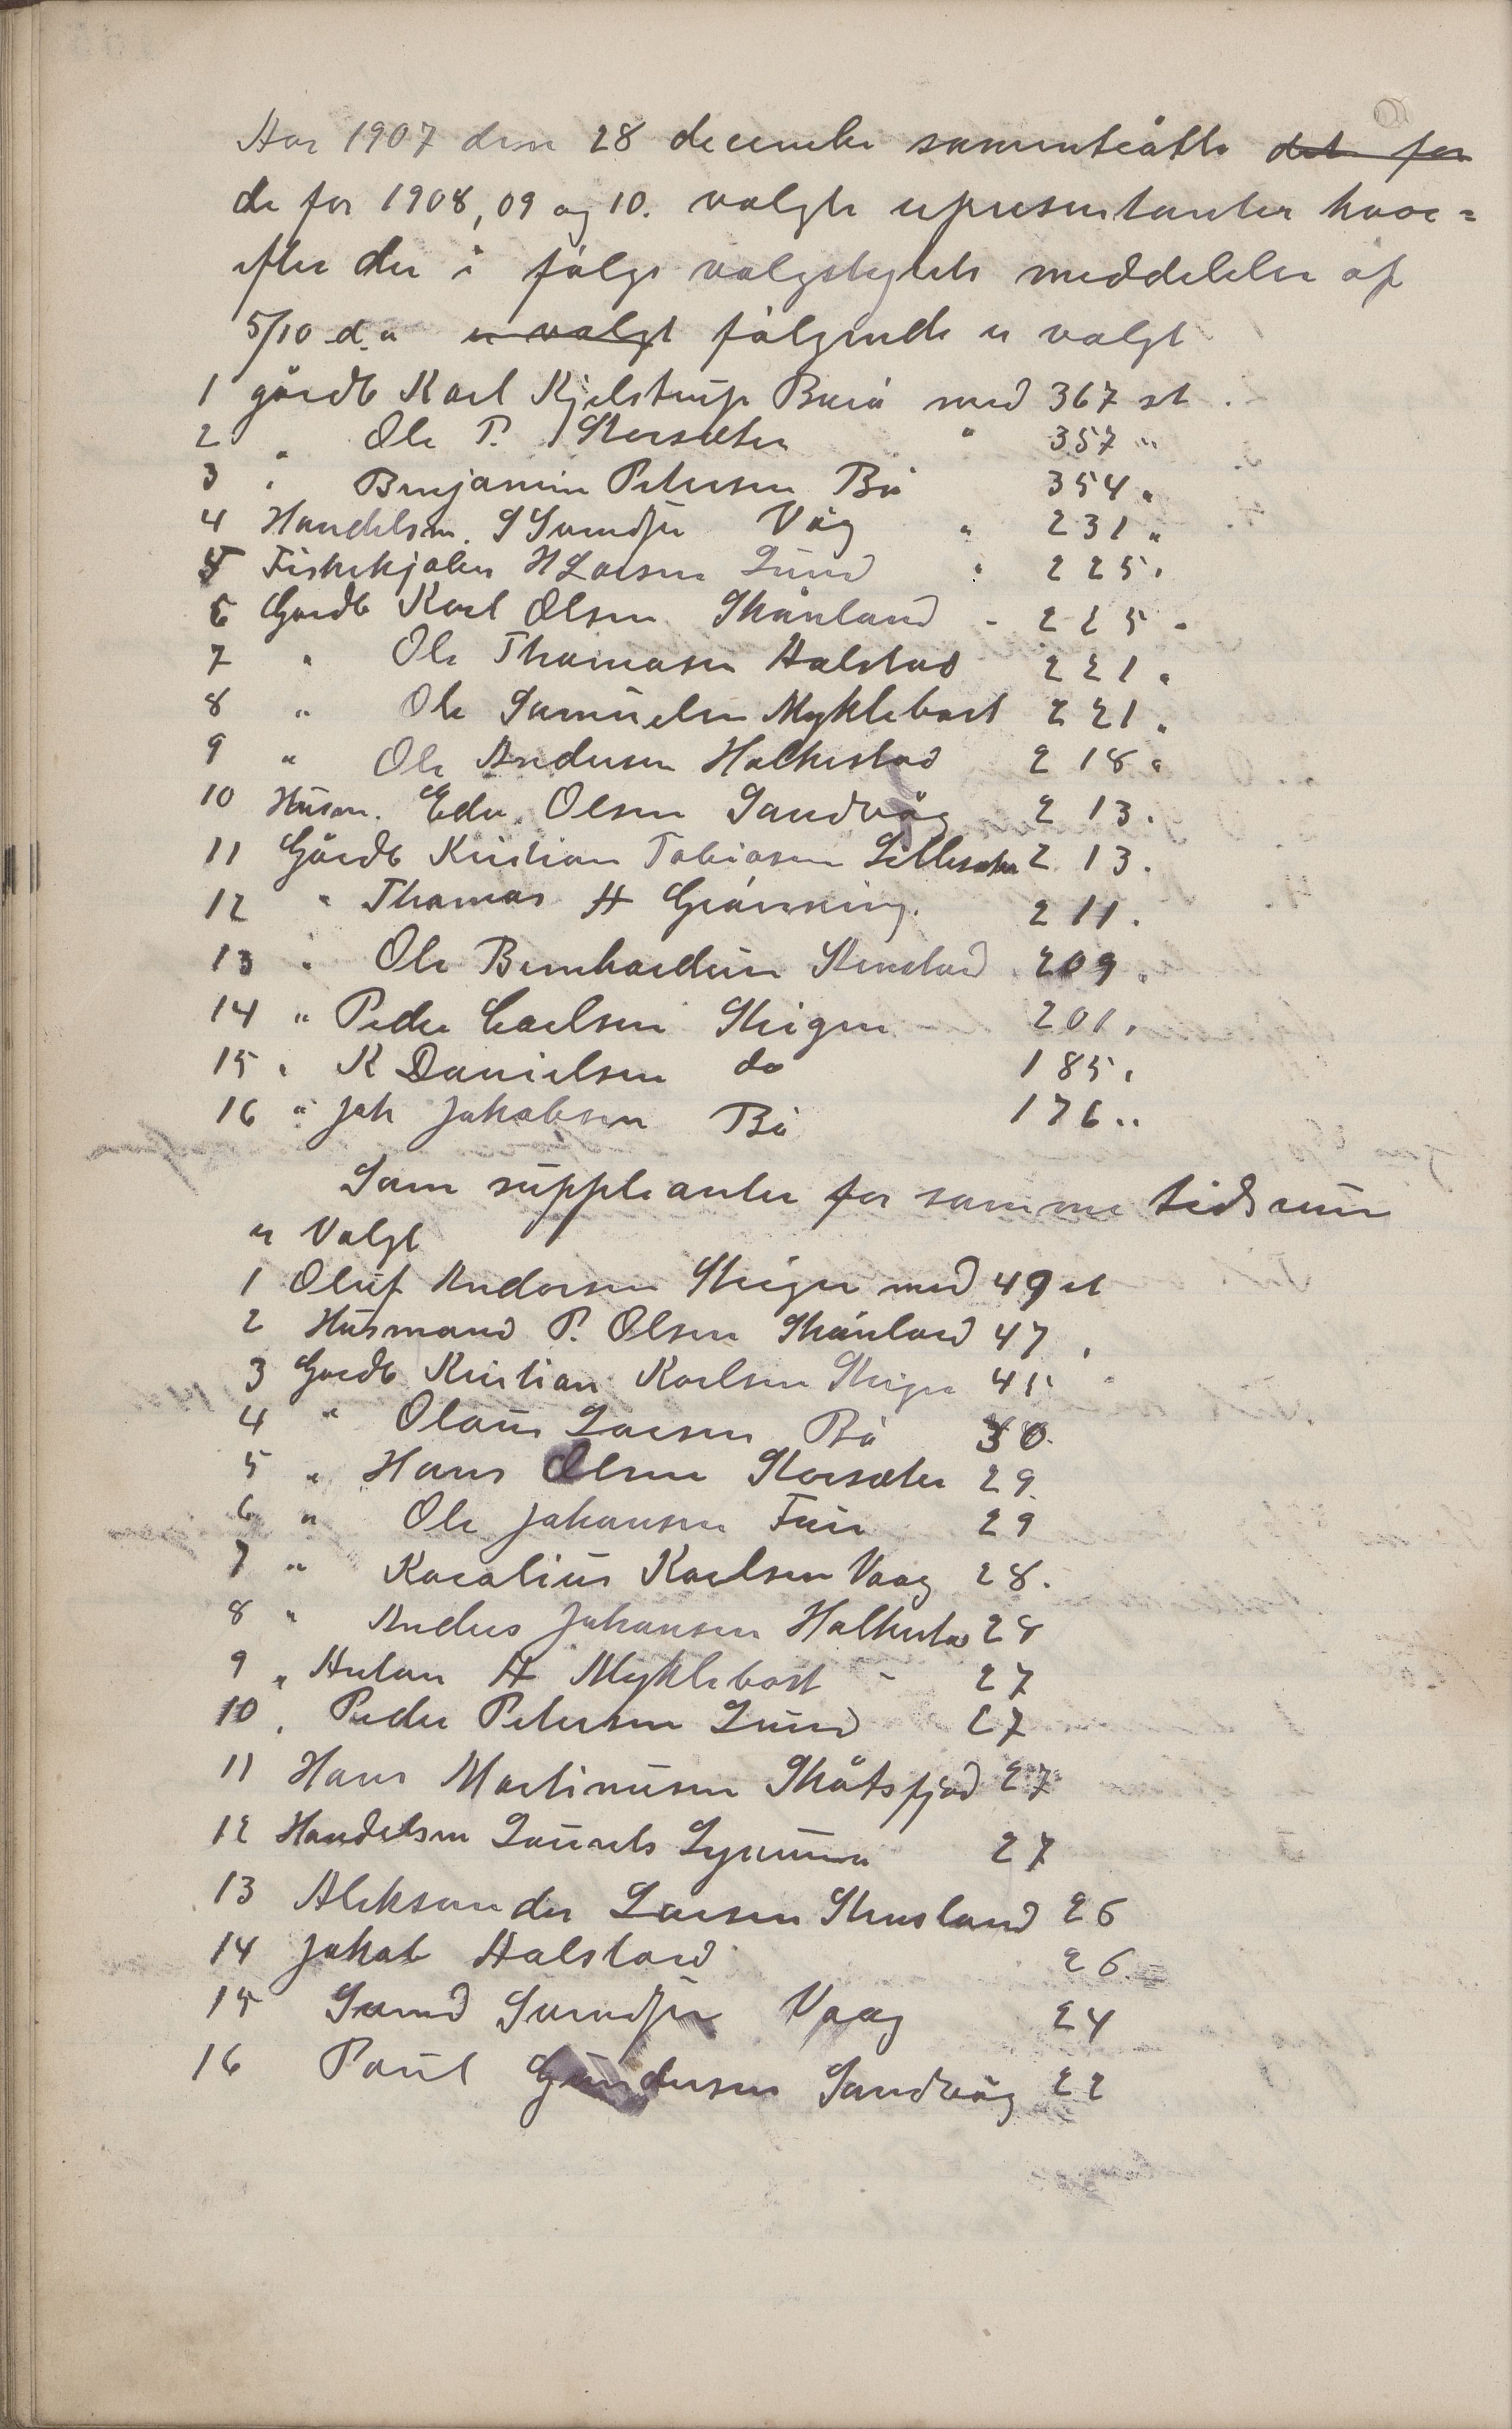 Aar 1907 den 28 december sammentraatte det for
de for 1908, 09 og 10. valgte representanter hvor=
efter der i følge valgstyrets meddelelse af
5/10 d.a er valgt følgende er valgt
1 gårdb Karl Kjelstrup Burø med 367 st.
2 " Ole P. Storsæter " 357 "
3 " Benjamin Petersen Bø 354 "
4 Handelsm. S Svendsen Våg " 231 "
5 Fiskekjøber H Larsen Lund " 225 "
6 Gaardb Karl Olsen Skånland - 225 "
7 " Ole Thomasen Halstad 221 "
8 " Ole Samuelsen Myklebost 221 "
9 " Ole Andersen Holkestad 218 "
10 Husm. Edv. Olsen Sandvåg 213 "
11 Gårdb Kristian Tobiasen Lillesæter 213 "
12 " Thomas H Grønning. 211 "
13 " Ole Bernhardsen Stenstad 209 "
14 " Peder Carlsen Steigen 201 "
15 " K Danielsen do 185 "
16 " Joh Jakobsen Bø 176 "
Som suppleanter for samme tidsrum
er Valgt
1 Oluf Andersen Steigen med 49 st
2 Husmand P. Olsen Skånland 47 "
3 Gaardb Kristian Karlsen Steigen 41 "
4 " Olaus Larsen Bø 30
5 " Hans Olsen Storsæter 29
6 " Ole Johansen Fure 29
7 " Karolius Karlsen Vaag 28.
8 " Andreas Johansen Holkestad 28
9 " Anton A Myklebost - 27
10 " Peder Petersen Lund 27
11 Hans Martinusen Skåtsfjord 27
12 Handelsm Laurits 27
13 Aleksander Larsen 26
14 Jakob Halstad 26
15 Svend Svendsen Vaag 24
16 Paul Gundersen Sandvåg 22